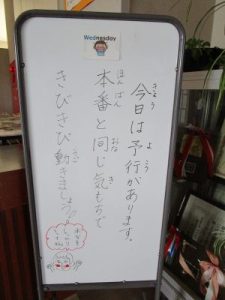 Wednesday
今日は予行があります。
本番と同じ気もちで
きびきび動きましょう。